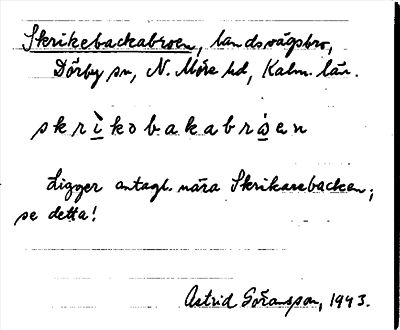 Skrikebackabroen, landsvägsbro,
Dörby sn, N. Möre hd, Kalm. län.
skrìkobakabråen
Ligger antagl. nära Skrikarebacken;
se detta!
Astrid Göransson, 1943.